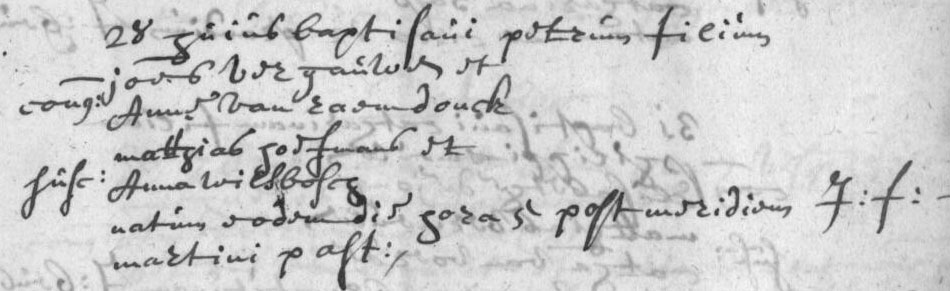 28 huius baptisavi petrum filium
joēs vergauwen et
conq: Annę van raemdonck
matthias hofmans et
susc: Anna wilsbosch
natum eodem die hora 5 post meridiem J: f:
martini past: